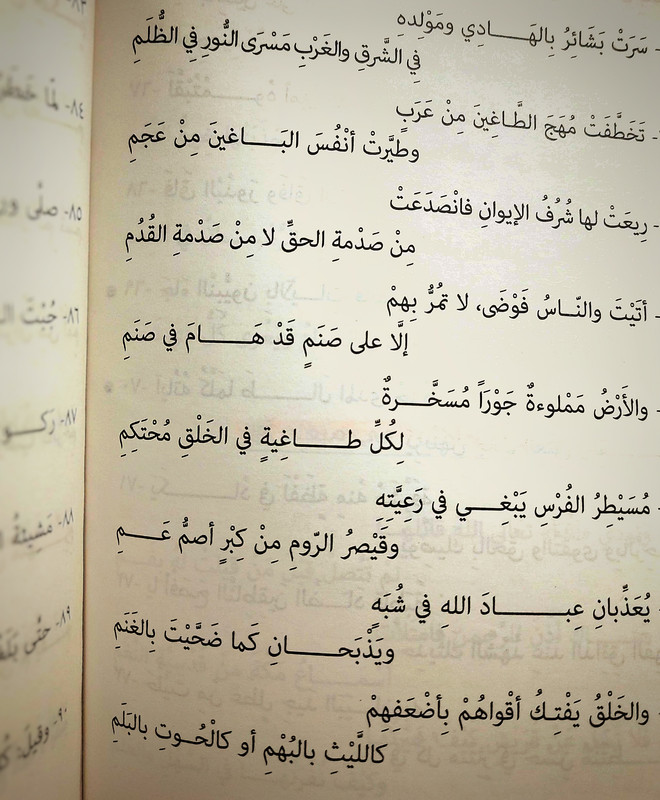 سَرَتْ بَشَائِرُ بالهَـــــادِي ومَوْلِدِهِ
فِي الشَّرقِ والغَرْبِ مَسْرَى النُّورِ فِي الظُّلَمِ
تَخَطَّفَتْ مُهَجَ الطَّاغِينَ مِنْ عَرَبٍ
وطيَّرتْ أنْفُسَ البَـــــاغينَ مِنْ عَجَمِ
رِيعَتْ لها شُرُفُ الإيوانِ فانْصَدَعَتْ
مِنْ صَدْمةِ الحقِّ لا مِنْ صَدْمةِ القُدُمِ
أتَيْتَ والنّـاسُ فَوْضَى، لا تَمُرُّ بِهِمْ
إلَّا على صَنَمٍ قَدْ هَـــــامَ في صَنَمِ
والأَرْضُ مَمْلوءةٌ جَوْرَاً مُسَخَّـــرةٌ
لِكُلِّ طـــــاغِيةٍ في الخَلْقِ مُحْتَكِمِ
مُسَيْطِرُ الفُرْسِ يَبْغِـــي في رَعِيَّتِهِ
وقَيْصرُ الرّومِ مِنْ كِبْرٍ أصمُّ عَـــمِ
يُعَذِّبانِ عِبـــــــادَ اللهِ في شُبَهٍ
ويَذْبَحـــــانِ كَما ضَحَّيْتَ بِالغَنَمِ
والخَلْقُ يَفْتِـكُ أقْواهُمْ بِأضْعَفِهِمْ
كاللَّيْثِ بالبُهْمِ أو كالْحُـوتِ بالبَلَمِ
٨٤- لمَّا
٨٥- صلَّى
٨٦- جُبْتَ
٨٧- ركـــو
٨٨- مَشِيئةُ
٨٩- حتَّى
٩٠- وقيلَ: